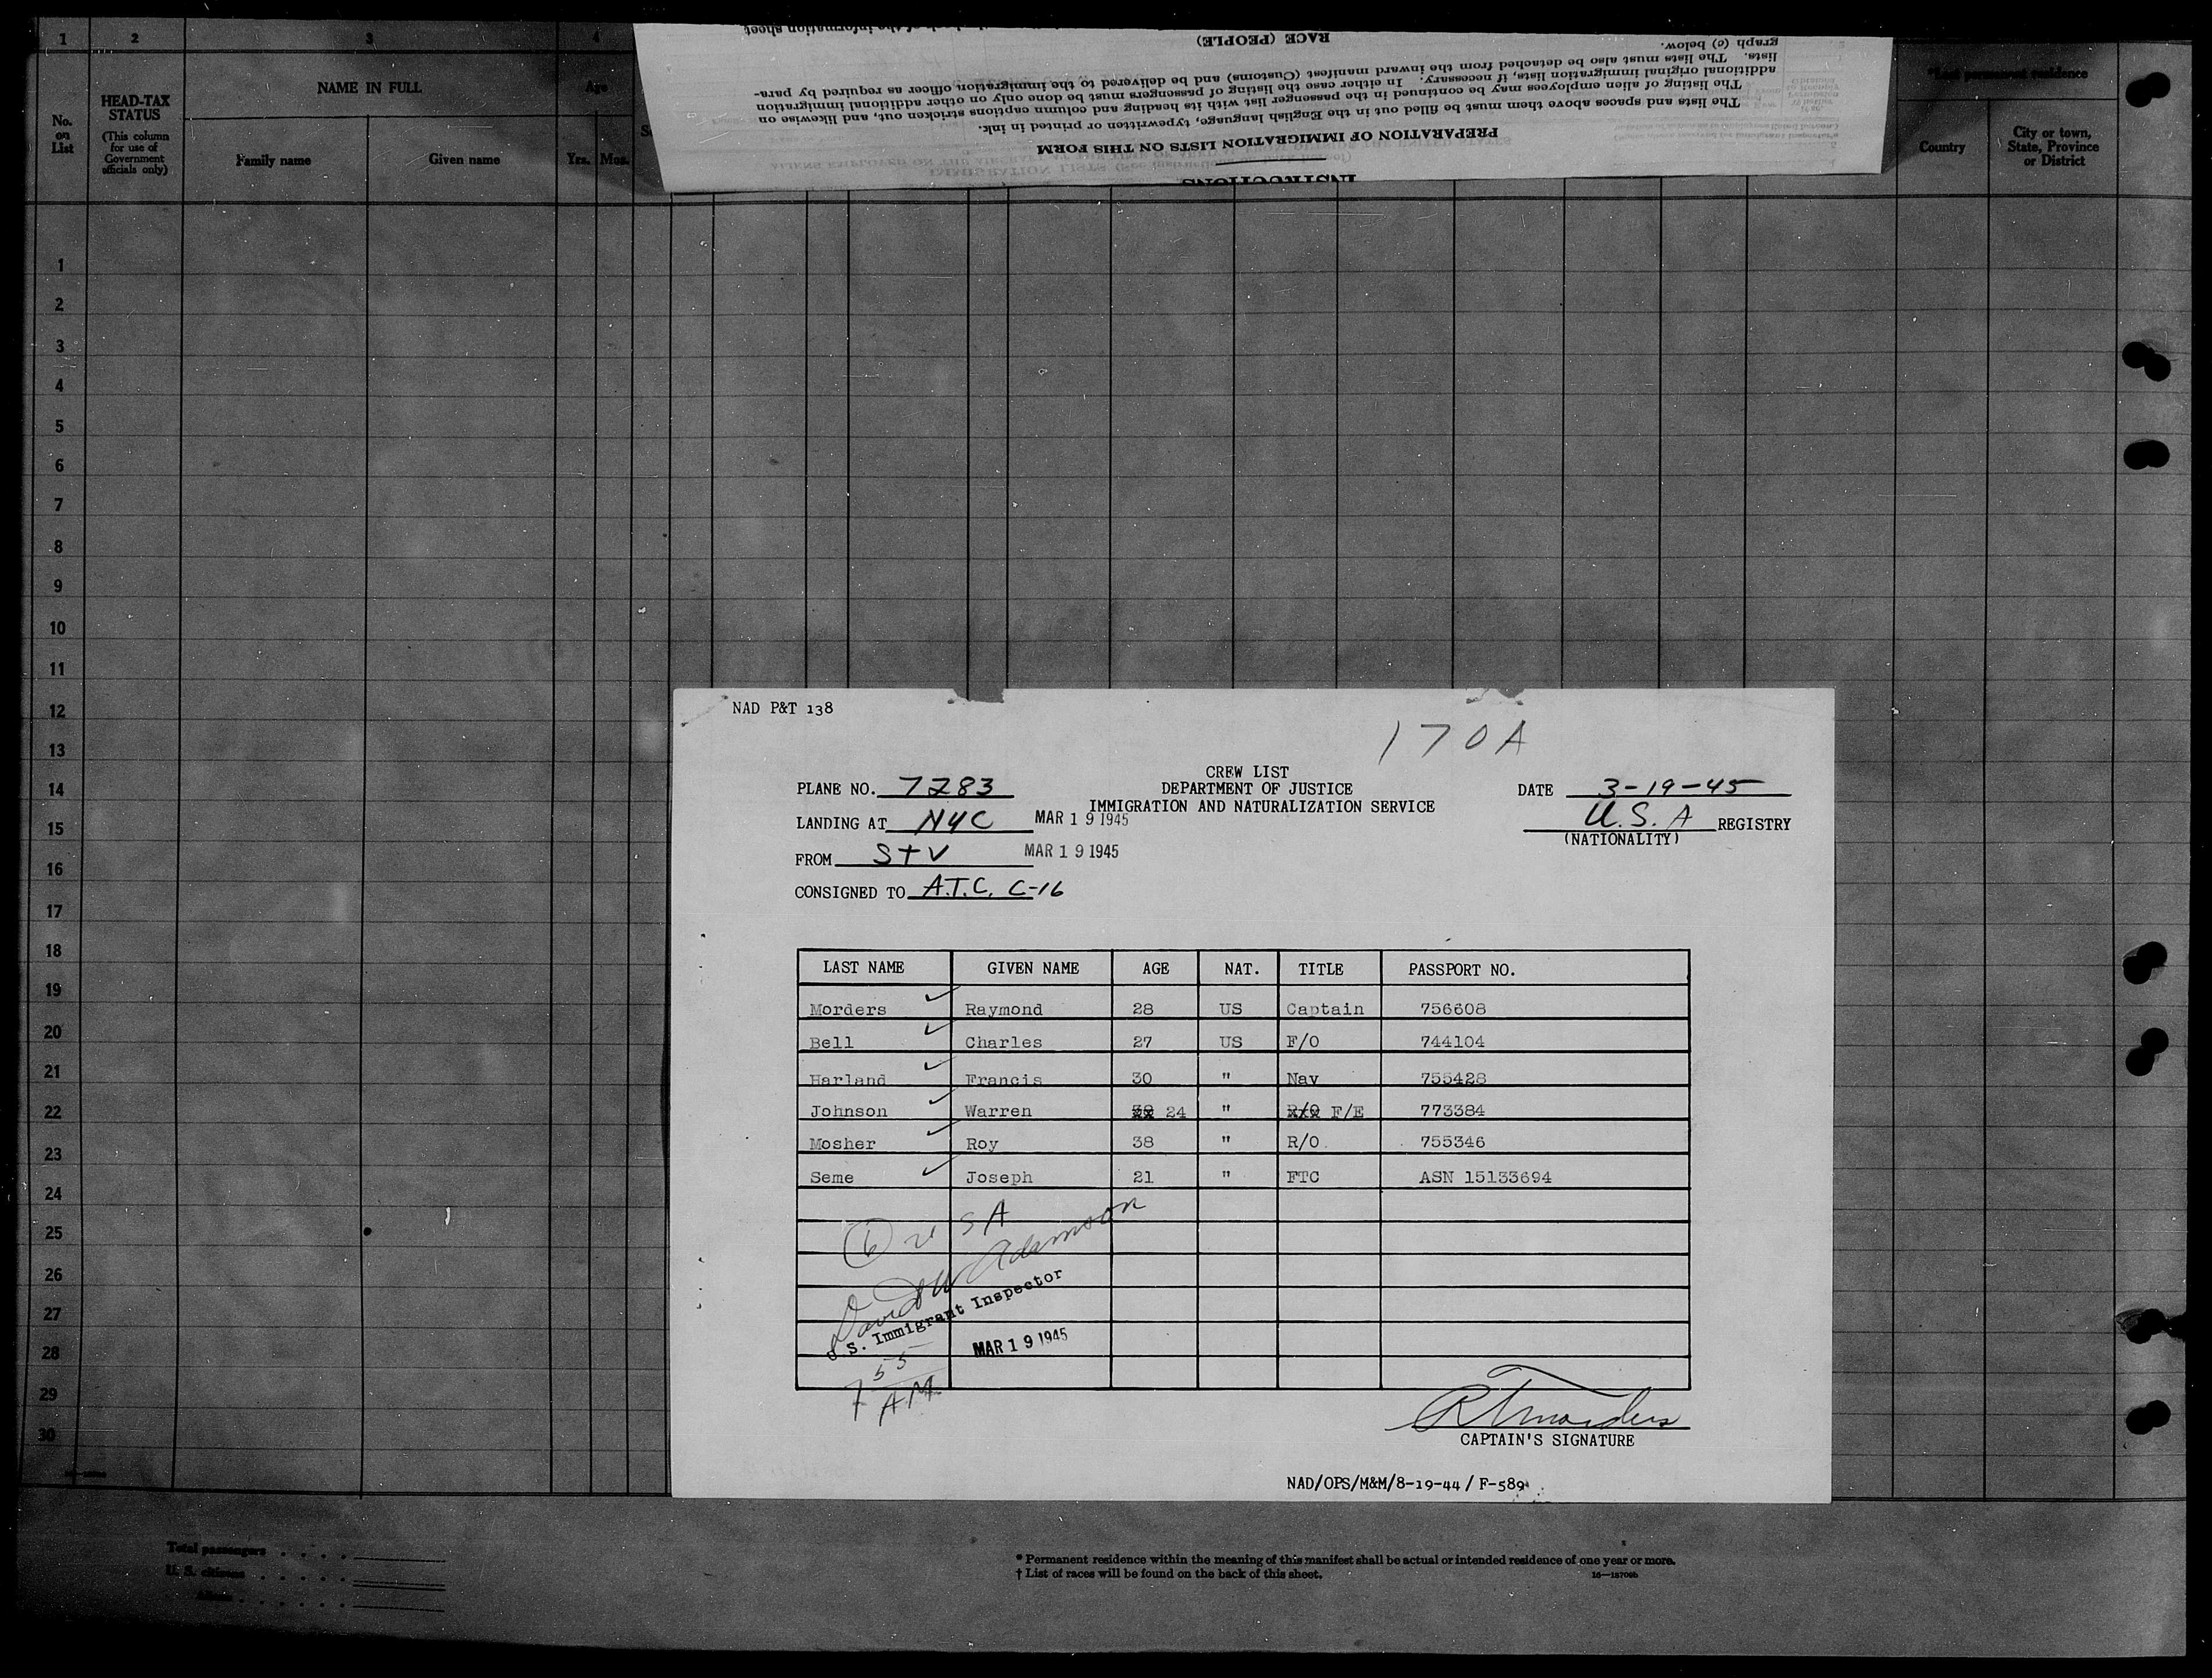 1 2 3 4
No. on List
HEAD-TAX STATUS
(This column for use of Government officials only)
NAME IN FULL
Family name Given name
Age
Yrs. Mos.
INSTRUCTIONS
PREPARATION OF IMMIGRATION LISTS ON THIS FORM
The lists and spaces above them must be filled out in the English language, typewritten or printed in ink.
The listing of alien employees may be continued in the passenger list with its heading and column captions stricken out, and likewise on
additional original immigration lists, if necessary. In either case the listing of passengers must be done only on other additional immigration
lists. The lists must also be detached from the inward manifest (Customs) and be delivered to the immigration officer as required by para-
graph (c) below.
RACE (PEOPLE)
*Last permanent residence
Country
City or town, State, Province or District
1
2
3
4
5
6
7
8
9
10
11
12
13
14
15
16
17
18
19
20
21
22
23
24
25
26
27
28
29
30
NAD P&T 138
170A
CREW LIST
DEPARTMENT OF JUSTICE
IMMIGRATION AND NATURALIZATION SERVICE
PLANE NO. 7283
DATE 3-19-45
LANDING AT NYC MAR 19 1945
U.S.A REGISTRY
(NATIONALITY)
FROM STV MAR 19 1945
CONSIGNED TO A.T.C. C-16
LAST NAME GIVEN NAME AGE NAT. TITLE PASSPORT NO.
Morders Raymond 28 US Captain 756608
Bell Charles 27 US F/O 744104
Harland Francis 30 " Nav 755428
Johnson Warren 24 " F/E 773384
Mosher Roy 38 " R/O 755346
Seme Joseph 21 " FTC ASN 15133694
6 USA
David W Adamson
U.S. Immigrant Inspector
MAR 19 1945
7 55 AM
RTMorders
CAPTAIN'S SIGNATURE
NAD/OPS/M&M/8-19-44/F-589
Total passengers
U. S. citizens
Aliens
* Permanent residence within the meaning of this manifest shall be actual or intended residence of one year or more.
† List of races will be found on the back of this sheet.